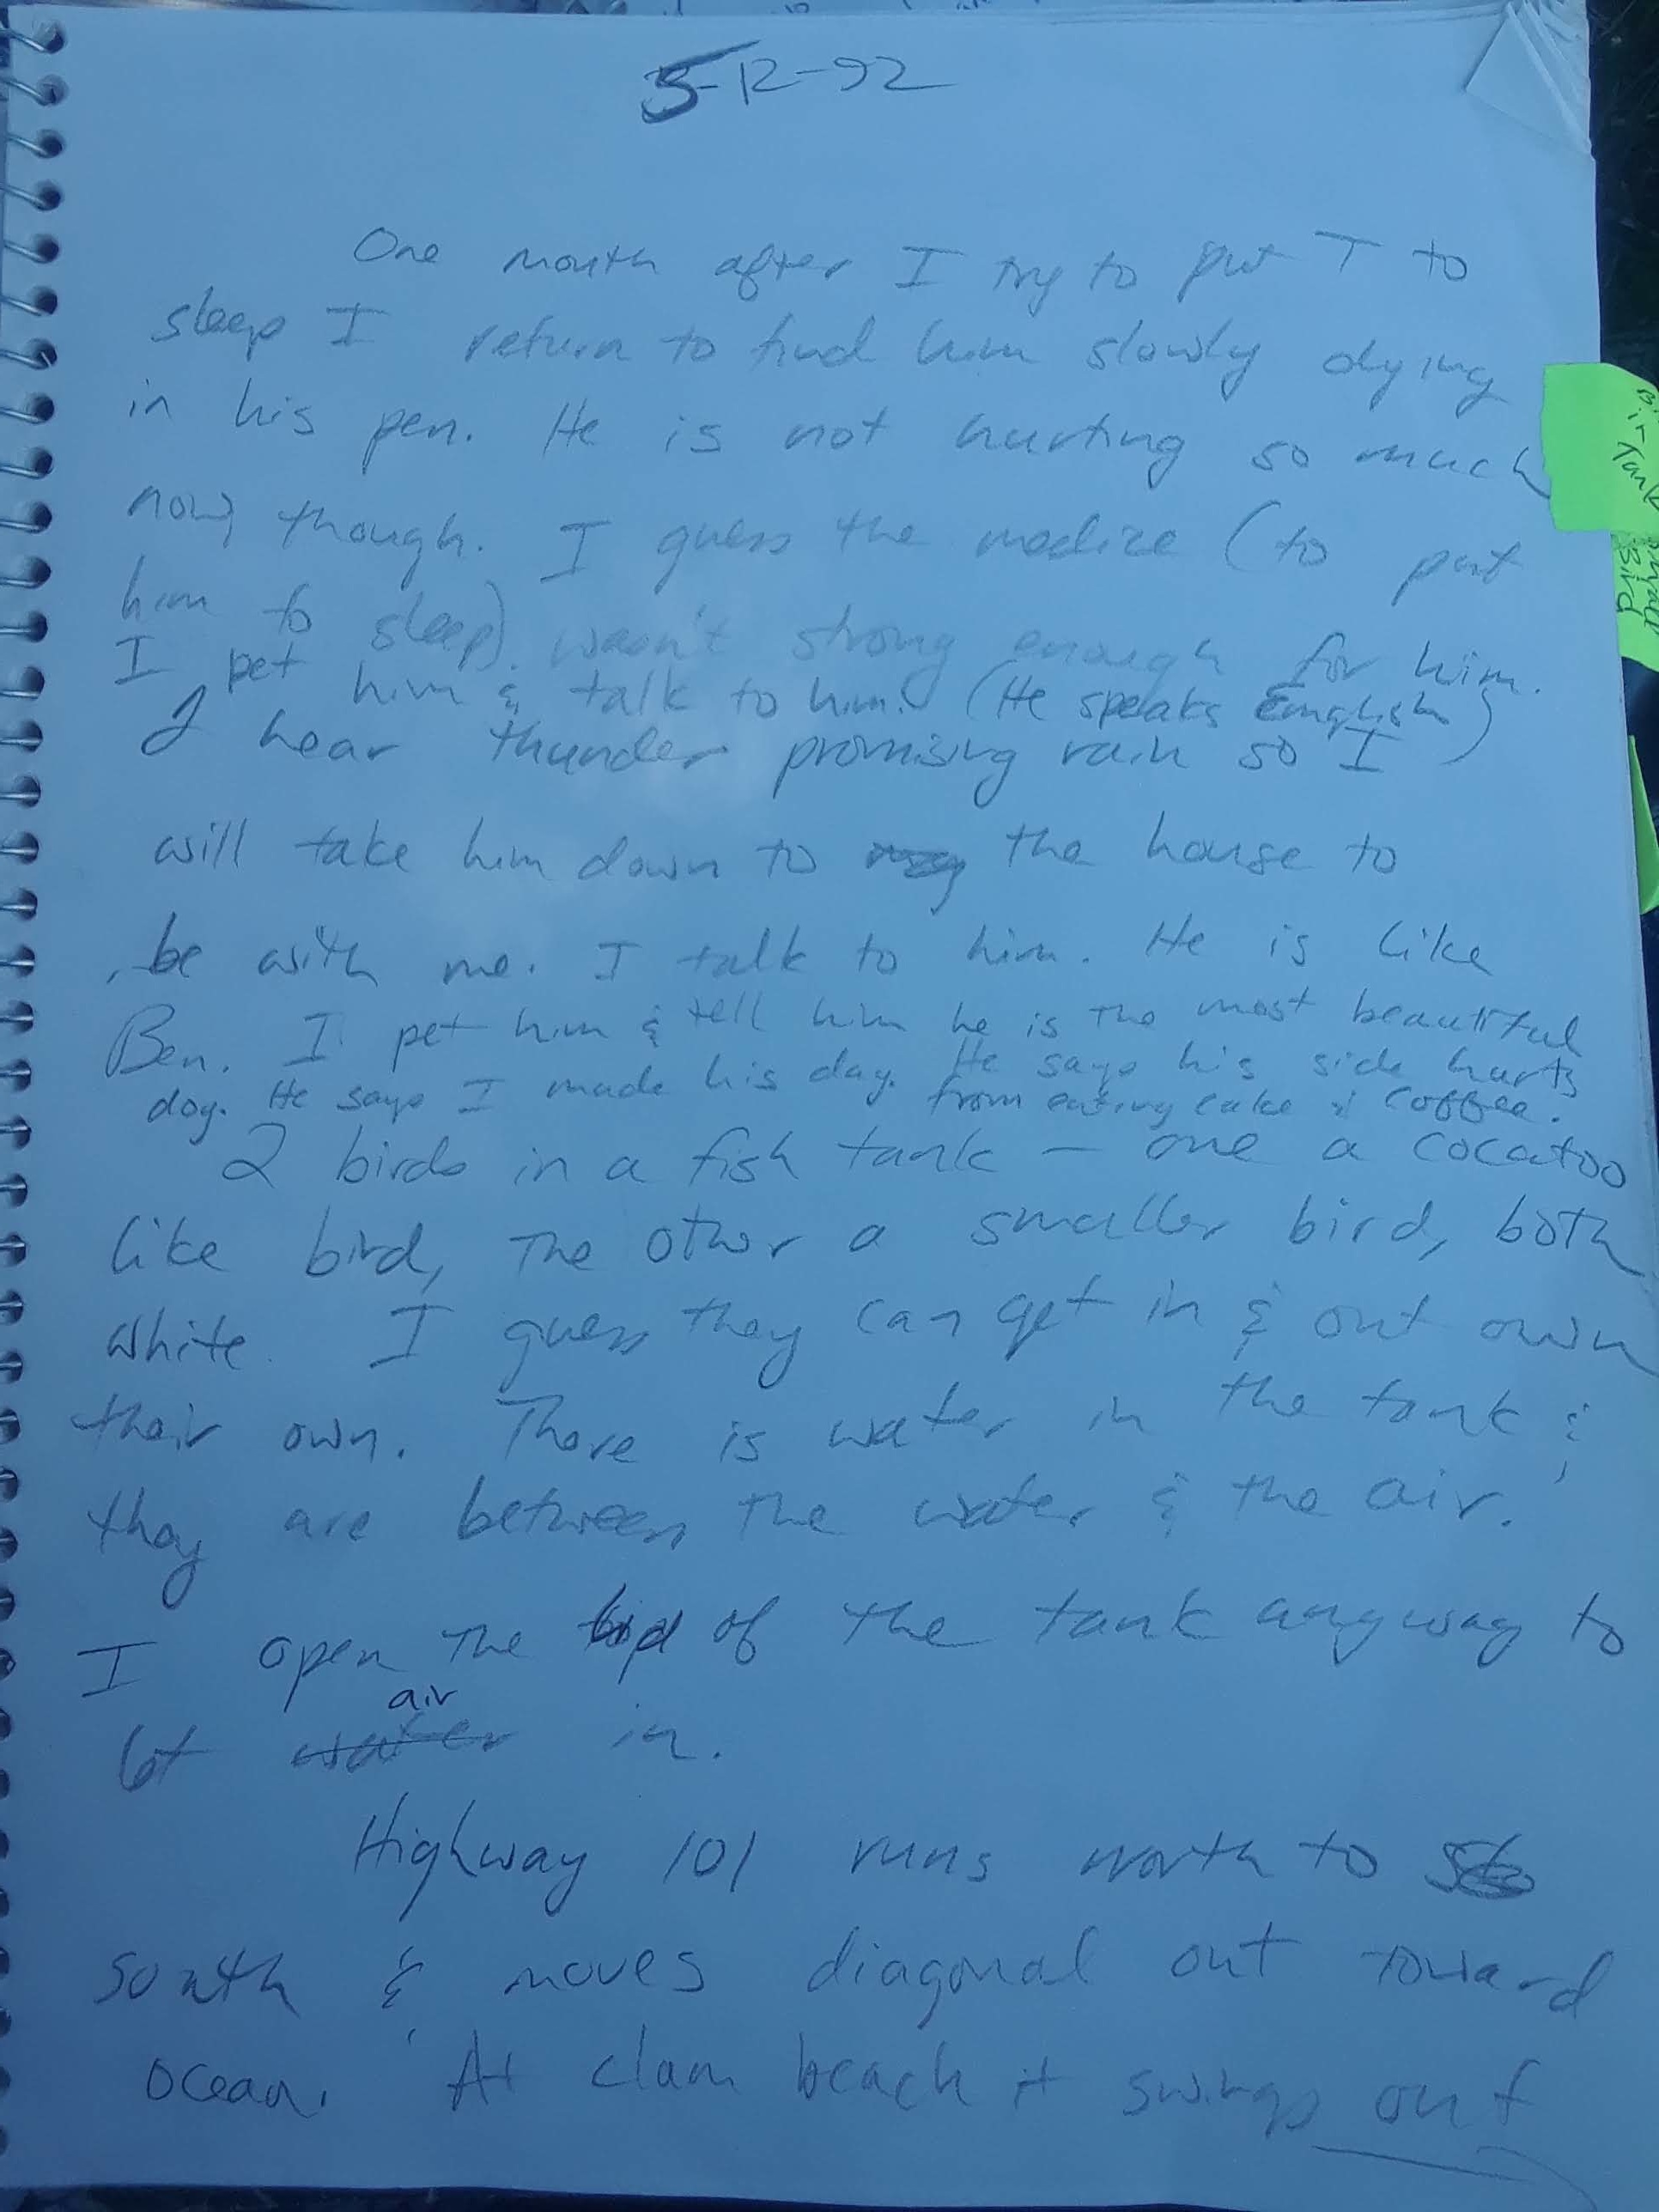 5-12-92
One month after I try to put T to
sleep I return to find him slowly dying
in his pen. He is not hurting so much
now, though. I guess the medize (to put
him to sleep). wasn't strong enough for him.
I pet him & talk to him. (He speaks English)
I hear thunder promising rain so I
will take him down to the house to
be with me. I talk to him. He is like
Ben. I pet him & tell him he is the most beautiful
dog. He says I made his day. He says his side hurts
from eating cake & coffee.
2 birds in a fish tank — one a cocatoo
like bird, the other a smaller bird, both
white. I guess they can get in & out own
their own. There is water in the tank &
they are between the water & the air.
I open the of the tank anyway to
let water air in.
Highway 101 runs north to
south & moves diagonal out toward
ocean. At clam beach it swings out
Tank
Bird